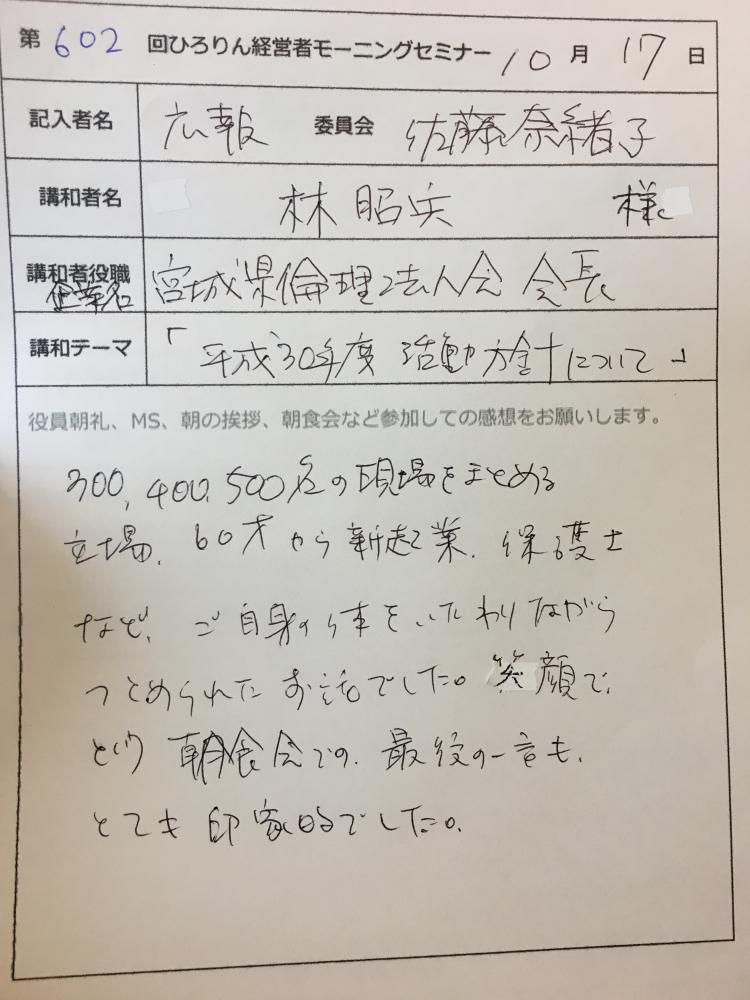 第602回ひろりん経営者モーニングセミナー 10月17日
記入者名 広報 委員会 佐藤奈緒子
講和者名 林昭兵 様
講和者役職 宮城県倫理法人会 会長
企業名
講和テーマ 「平成30年度 活動方針について」
役員朝礼、MS、朝の挨拶、朝食会など参加しての感想をお願いします。
300,400,500名の現場をまとめる
立場、60才から新起業、保護士
など、ご自身の体をいたわりながら
つとめられたお話でした。笑顔で、
という朝食会での、最後の一言も、
とても印象的でした。